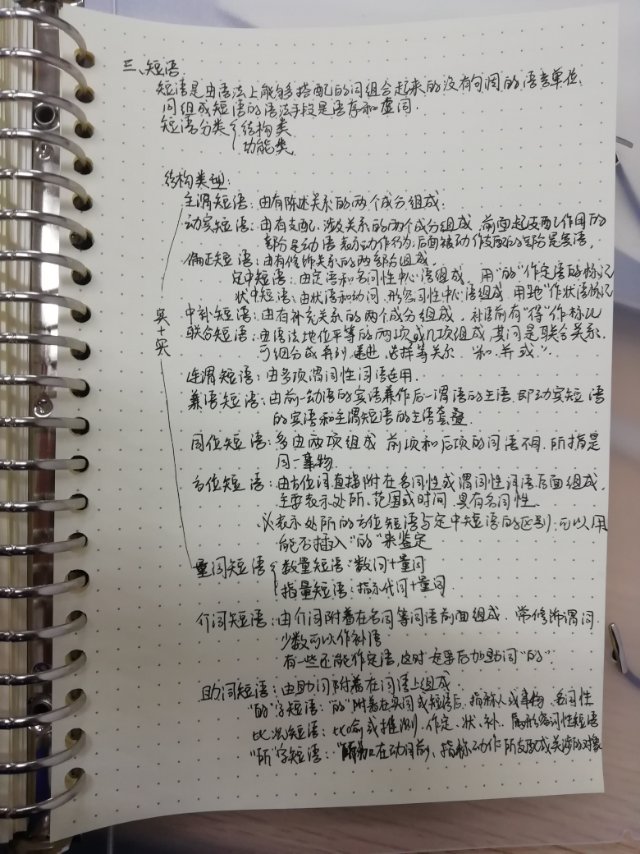 三、短语
短语是由语法上能够搭配的词组合起来的没有句调的语言单位,
词组成短语的语法手段是语序和虚词.
短语分类{结构类
功能类
结构类型:
主谓短语:由有陈述关系的两个成分组成.
动宾短语:由有支配、涉及关系的两个成分组成,前面起支配作用的
部分是动语,表示动作行为,后面被动作支配的部分是宾语,
偏正短语:由有修饰关系的两部分组成.
定中短语:由定语和名词性中心语组成,用"的"作定语的标记
状中短语:由状语和动词、形容词性中心语组成,用"地"作状语标记
中补短语:由有补充关系的两个成分组成,补语前有"得"作标记
联合短语:由语法地位平等的两项或几项组成,其间是联合关系,
可组合成并列、递进、选择等关系."和、并、或".
实+实
连谓短语:由多项谓词性词语连用.
兼语短语:由前一动语的宾语兼作后一谓语的主语.即动宾短语
的宾语和主谓短语的主语套叠.
同位短语:多由两项组成 前项和后项的词语不同,所指是
同一事物
方位短语:由方位词直接附在名词性或谓词性词语后面组成,
主要表示处所、范围或时间,具有名词性.
※表示处所的方位短语与定中短语的区别:可以用
能否插入"的"来鉴定
量词短语{数量短语:数词+量词
指量短语:指示代词+量词
介词短语:由介词附着在名词等词语前面组成.常修饰谓词.
少数可以作补语
有一些还能作定语,这时 后加助词"的".
助词短语:由助词附着在词语上组成
"的"字短语:"的"附着在实词或短语后,指称人或事物,名词性
比况短语:比喻或推测,作定、状、补、属形容词性短语
"所"字短语:"所"加在动词前、指称动作所支配或关涉的对象